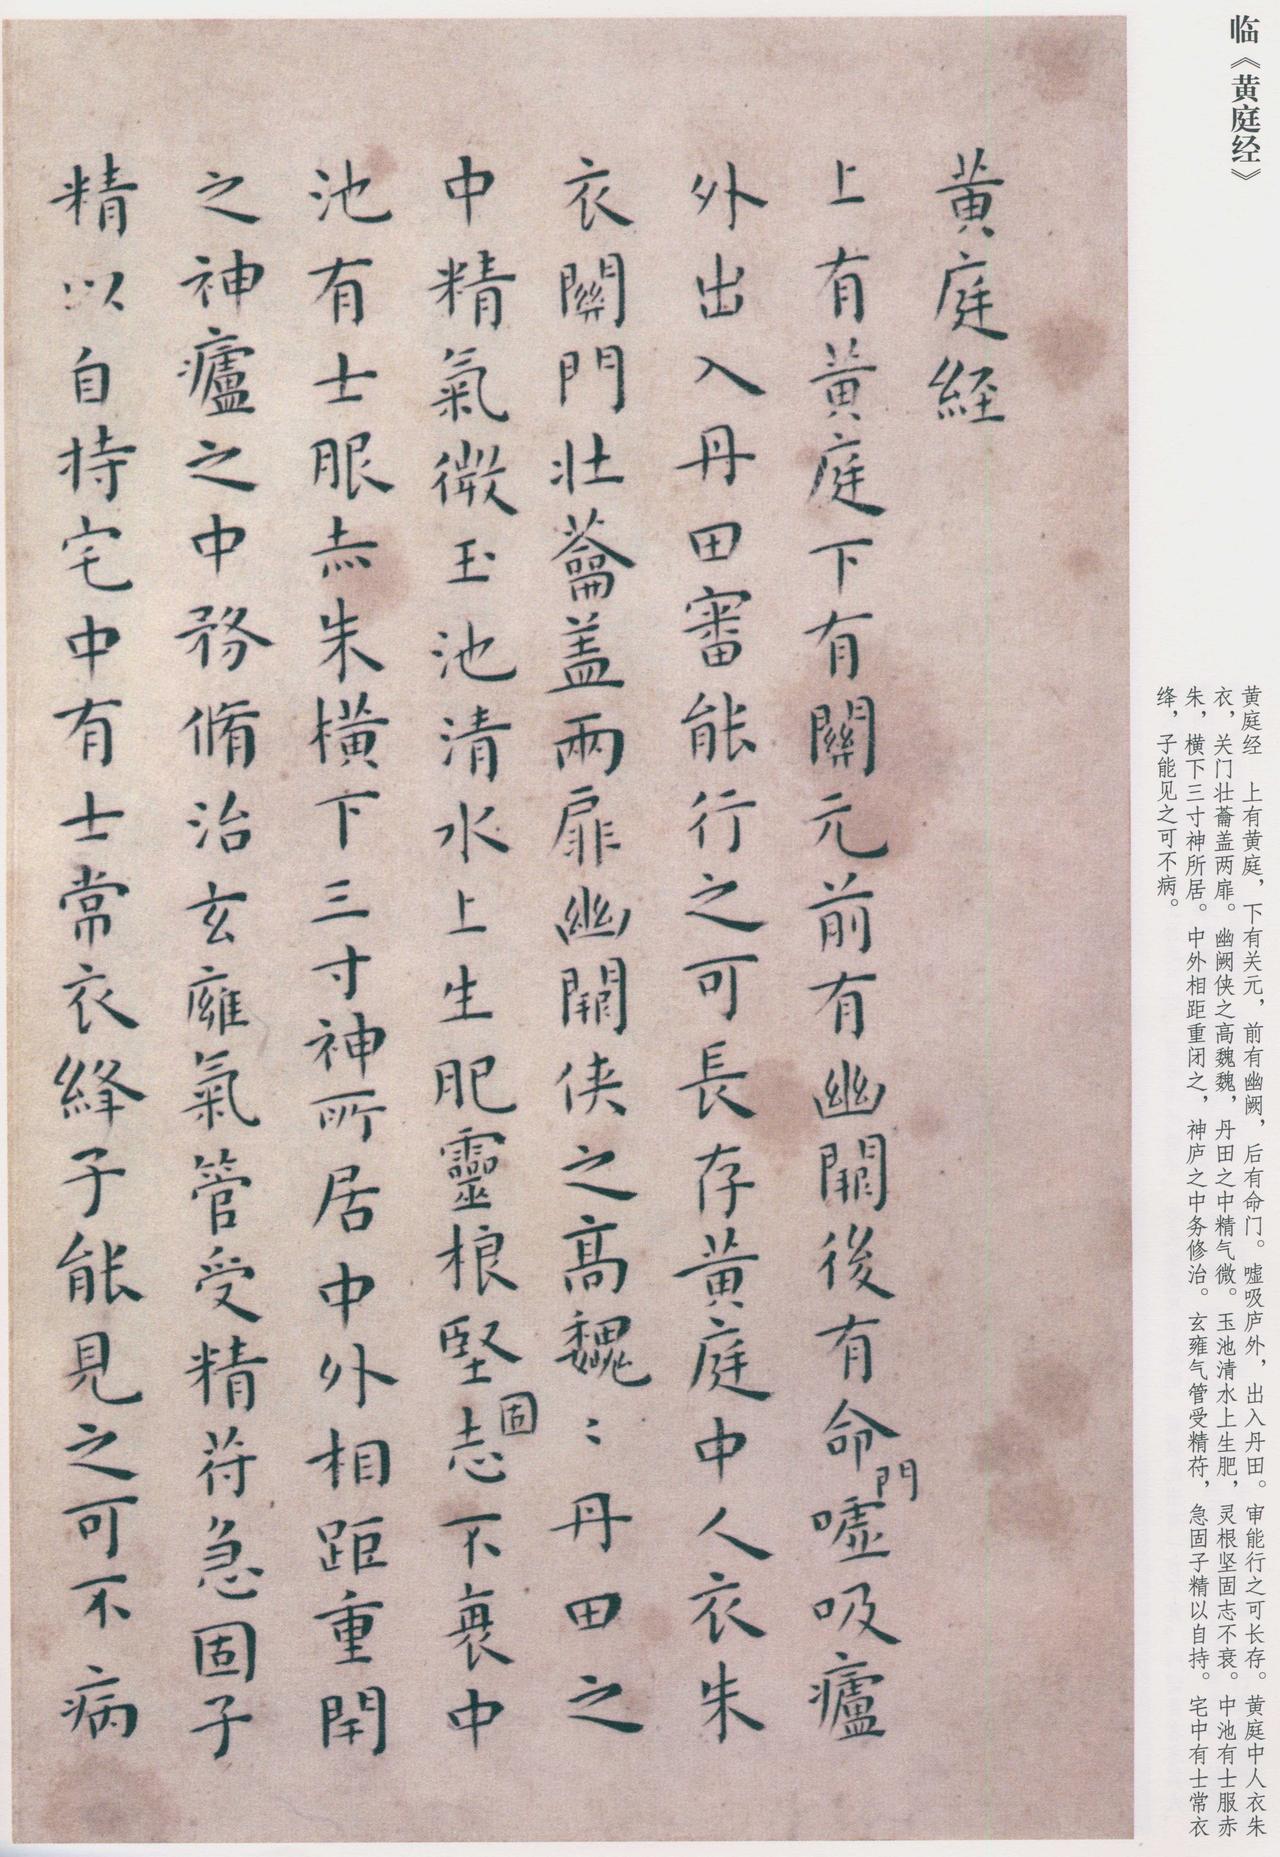 临《黄庭经》
黄庭经　上有黄庭，下有关元，前有幽阙，后有命门。嘘吸庐外，出入丹田。审能行之可长存。黄庭中人衣朱
衣，关门壮蘥盖两扉。幽阙侠之高魏魏，丹田之中精气微。玉池清水上生肥，灵根坚固志不衰。中池有士服赤
朱，横下三寸神所居。中外相距重闭之，神庐之中务修治。玄雍气管受精苻，急固子精以自持。宅中有士常衣
绛，子能见之可不病。
黄庭經
上有黄庭下有關元前有幽闕後有命門嘘吸廬
外出入丹田審能行之可長存黄庭中人衣朱
衣關門壯蘥盖兩扉幽闕侠之高魏〻丹田之
中精氣微玉池清水上生肥靈根堅固志不衰中
池有士服赤朱横下三寸神所居中外相距重閇
之神廬之中務脩治玄廱氣管受精苻急固子
精以自持宅中有士常衣絳子能見之可不病